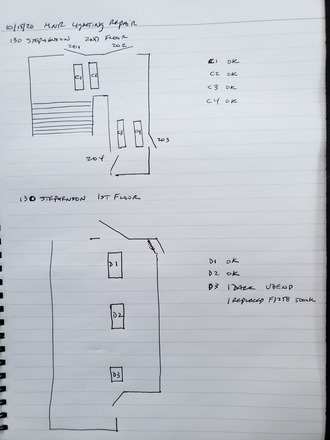 10/15/20 MNR LIGHTING REPAIR
130 STEPHENSON 2ND FLOOR
201 202
C1 C2
C1 OK
C2 OK
C3 OK
C4 OK
203
204
130 STEPHENSON 1ST FLOOR
D1
D2
D3
D1 OK
D2 OK
D3 1 DARK UBEND
1 REPLACED